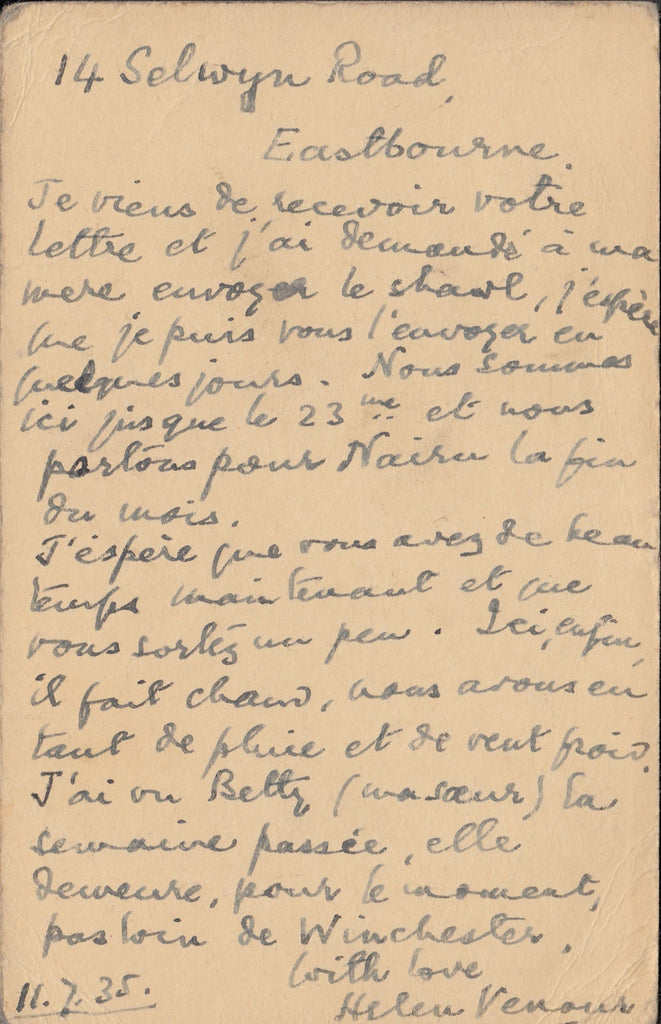 14 Selwyn Road,
Eastbourne.
Je viens de recevoir votre
lettre et j'ai demandé à ma
mere envoyer le shawl, j'espère
que je puis vous l'envoyer en
quelques jours. Nous sommes
ici jusque le 23me et nous
partons pour Nairn la fin
du mois.
J'éspère que vous avez de beau
temps maintenant et que
vous sortez un peu. Ici, enfin,
il fait chaud, nous avons eu
tant de pluie et de vent froid.
J'ai vu Betty (ma sœur) la
semaine passée, elle
demeure, pour le moment,
pas loin de Winchester.
With love
11.7.35. Helen Venour